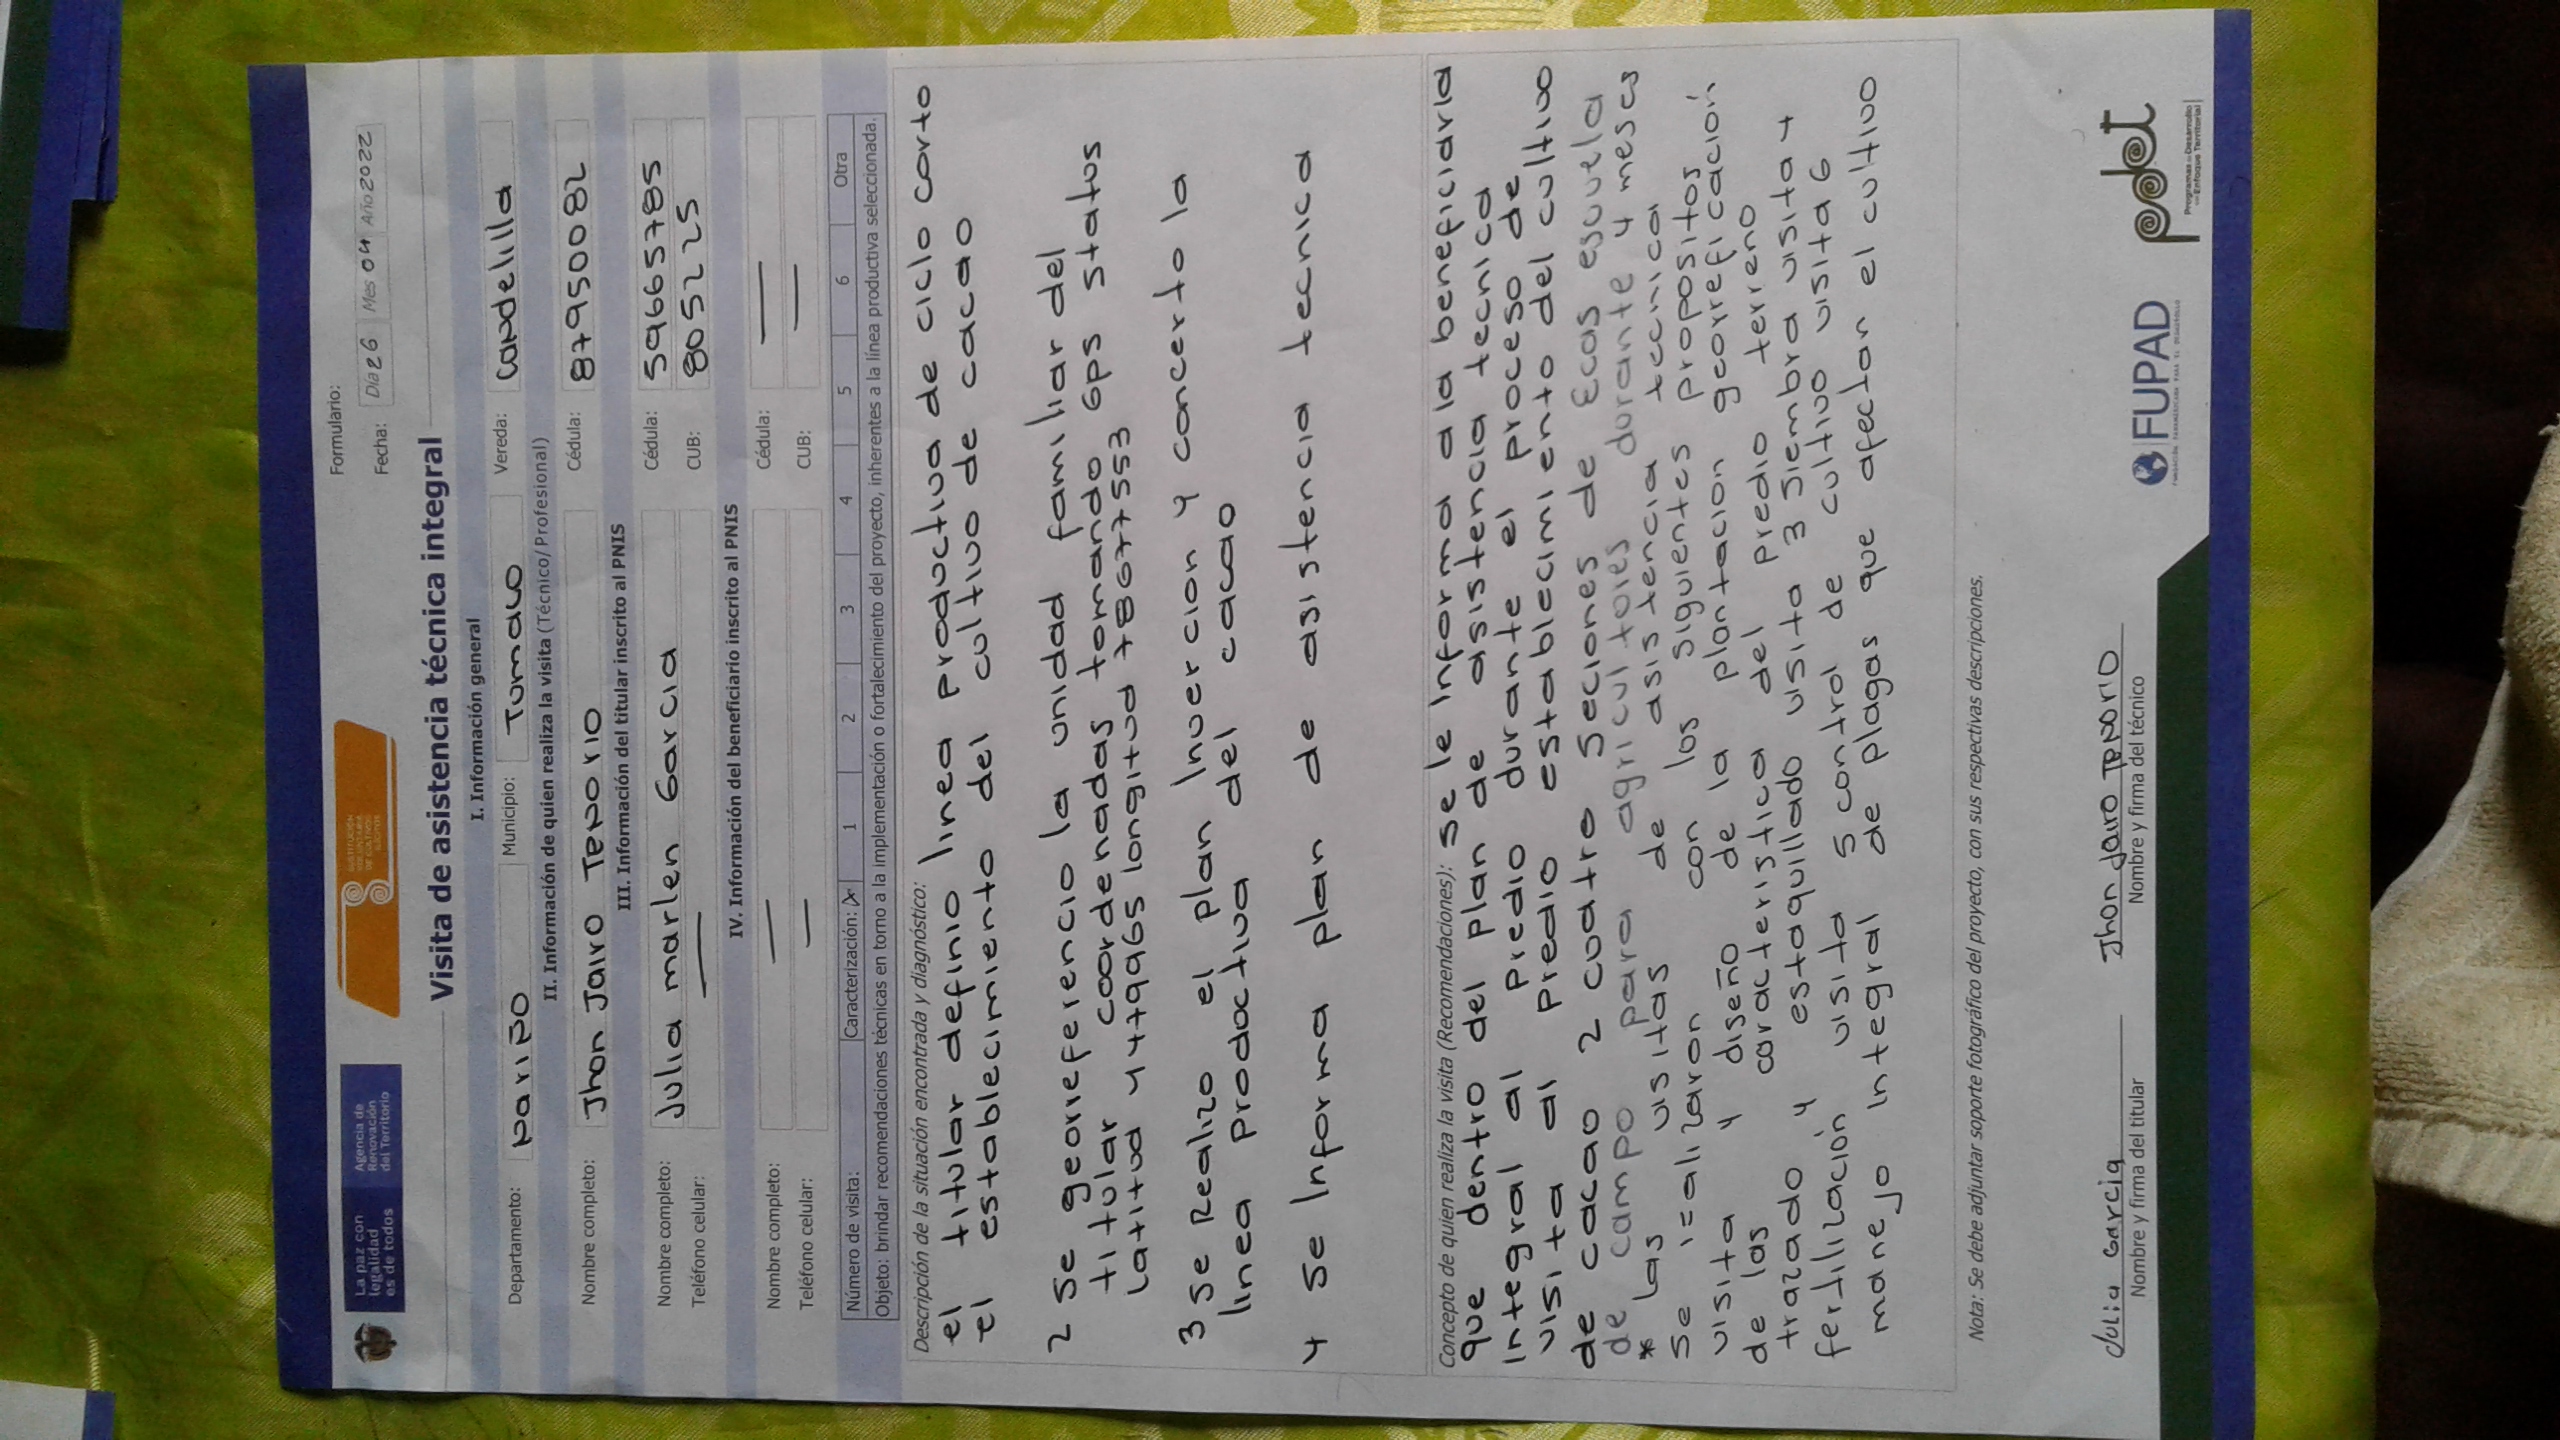 La paz con
legalidad
es de todos
Agencia de
Renovación
del Territorio
SUSTITUCIÓN
VOLUNTARIA
DE CULTIVOS
ILÍCITOS
Formulario:
Fecha: Día 26 Mes 04 Año 2022
Visita de asistencia técnica integral
I. Información general
Departamento: Nariño Municipio: Tumaco Vereda: Candelilla
II. Información de quien realiza la visita (Técnico/Profesional)
Nombre completo: Jhon Jairo Tenorio Cédula: 87950082
III. Información del titular inscrito al PNIS
Nombre completo: Julia marlen Garcia Cédula: 59665785
Teléfono celular: — CUB: 805225
IV. Información del beneficiario inscrito al PNIS
Nombre completo: — Cédula: —
Teléfono celular: — CUB: —
Número de visita: Caracterización: X 1 2 3 4 5 6 Otra
Objeto: brindar recomendaciones técnicas en torno a la implementación o fortalecimiento del proyecto, inherentes a la línea productiva seleccionada.
Descripción de la situación encontrada y diagnóstico:
el titular definio linea productiva de ciclo corto
el establecimiento del cultivo de cacao
2 se georieferencio la unidad familiar del
titular coordenadas tomando Gps status
Latitud 1,479965 longitud 78677553
3 se Realizo el plan Invercion y concerto la
linea productiva del cacao
4 se Informa plan de asistencia tecnica
Concepto de quien realiza la visita (Recomendaciones): se le Informa a la beneficiaria
que dentro del plan de asistencia tecnica
Integral al predio durante el proceso de
visita al predio establecimiento del cultivo
de cacao 2 cuatro Seciones de Ecas escuela
de campo para agricultores durante 4 meses
* Las visitas de asistencia tecnica
se realizaron con los siguientes propositos
visita y diseño de la plantacion georreficación
de las caracteristica del predio terreno
trazado y estaquillado visita 3 Siembra visita 4
fertilización visita 5 control de cultivo visita 6
manejo Integral de plagas que afectan el cultivo
Nota: Se debe adjuntar soporte fotográfico del proyecto, con sus respectivas descripciones.
Julia Garcia
Nombre y firma del titular
Jhon Jairo Tenorio
Nombre y firma del técnico
FUPAD
FUNDACIÓN PANAMERICANA PARA EL DESARROLLO
pdet
Programas de Desarrollo
con Enfoque Territorial